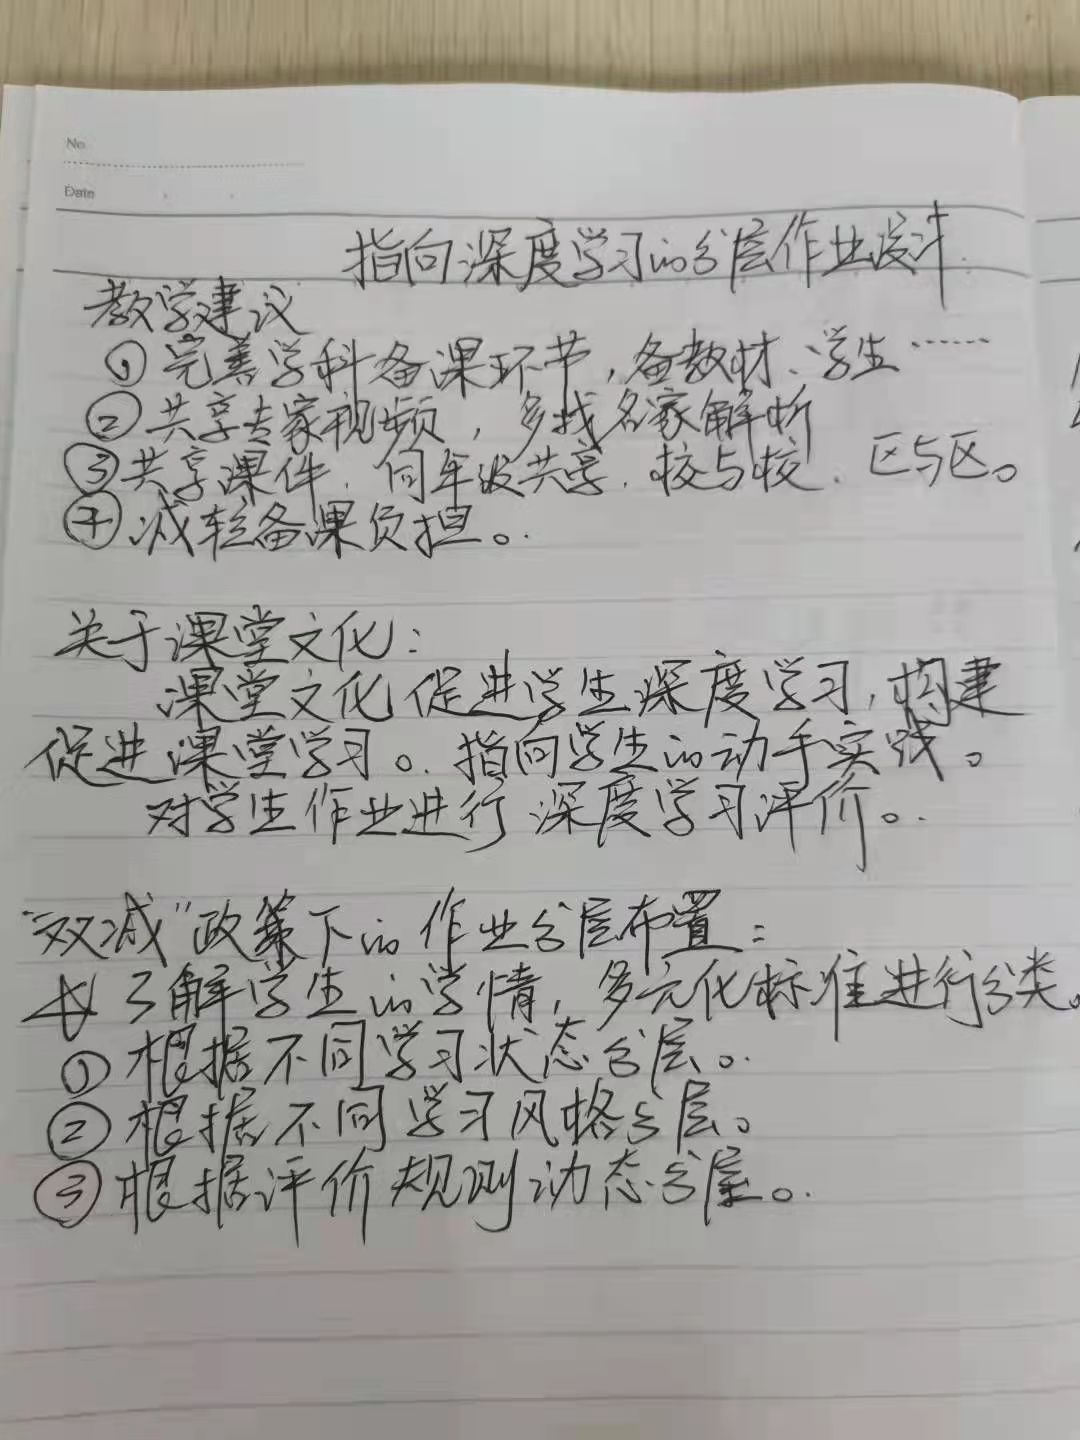 No
Date
指向深度学习的分层作业设计
教学建议
①完善学科备课环节,备教材、学生……
②共享专家视频,多找名家解析
③共享课件、同年级共享、校与校、区与区。
④减轻备课负担。
关于课堂文化:
课堂文化促进学生深度学习,构建
促进课堂学习。指向学生的动手实践。
对学生作业进行深度学习评价。
“双减”政策下的作业分层布置:
了解学生的学情,多元化标准进行分类。
①根据不同学习状态分层。
②根据不同学习风格分层。
③根据评价规则动态分层。